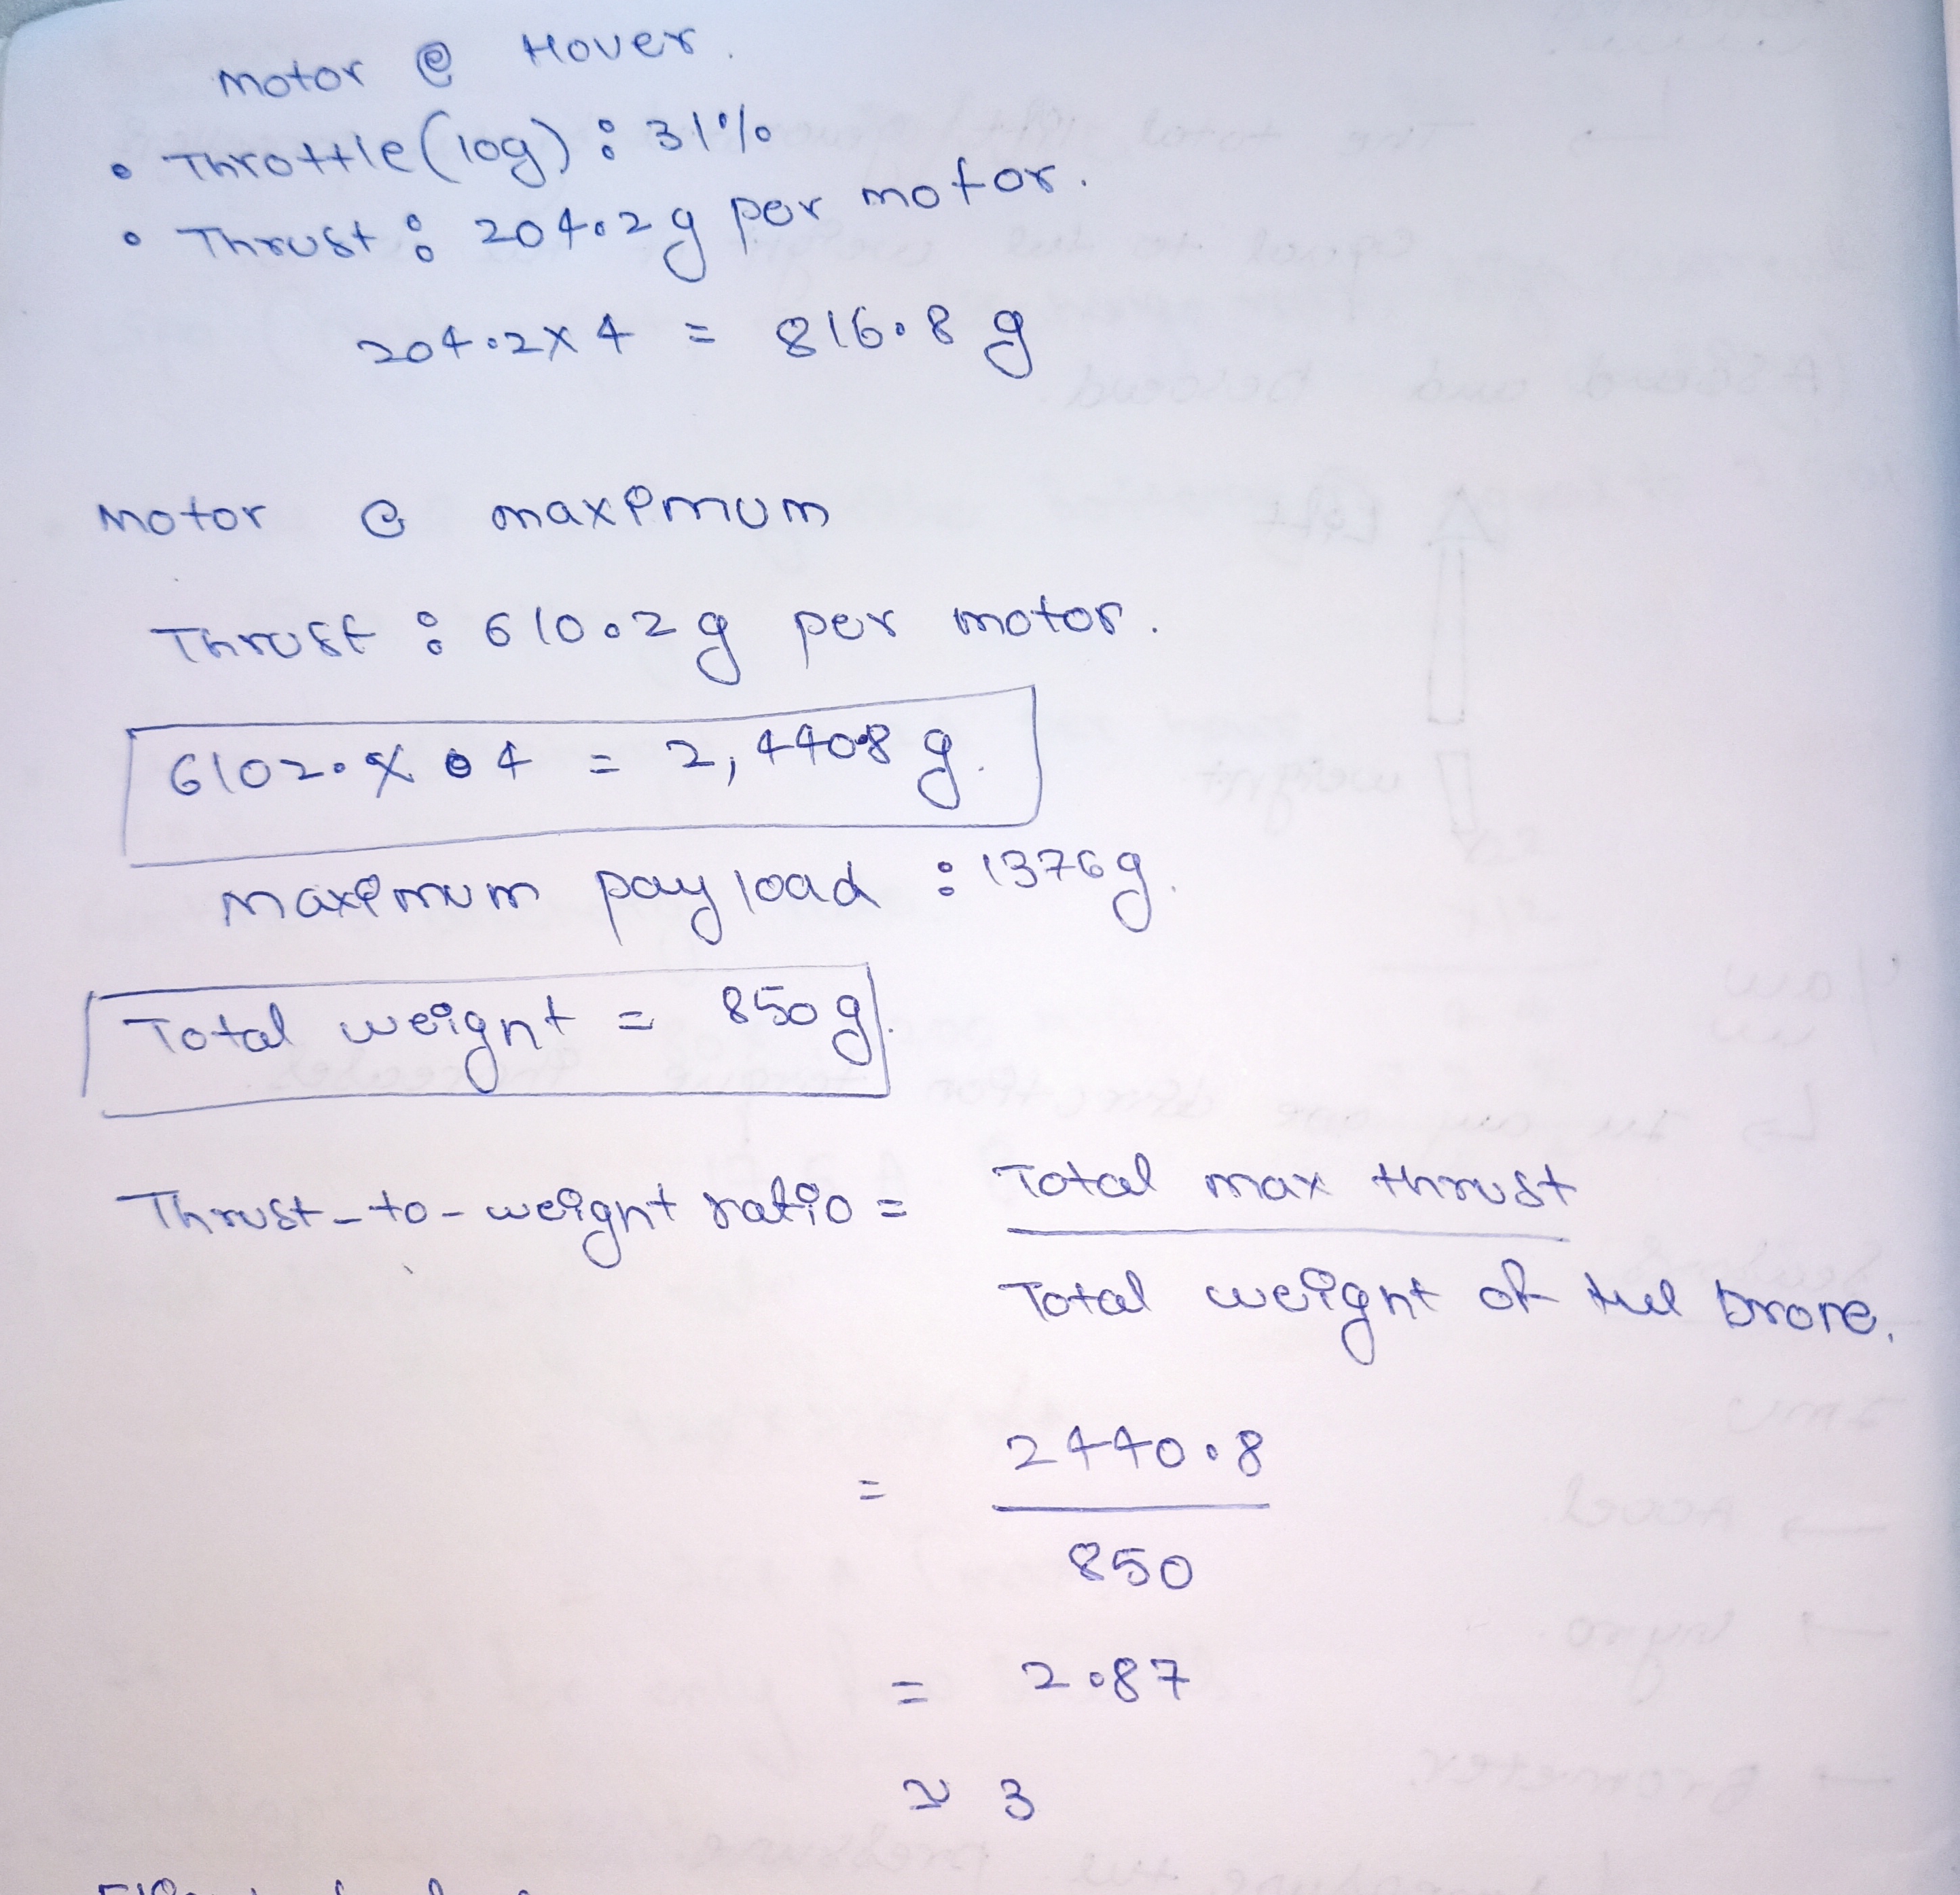 Motor @ Hover.
• Throttle (log) : 31%
• Thrust : 204.2g per motor.
204.2 x 4 = 816.8 g
Motor @ maximum
Thrust : 610.2g per motor.
6102. x 4 = 2,440.8 g.
maximum payload : 1376g.
Total weight = 850g.
Thrust-to-weight ratio = Total max thrust
Total weight of the Drone.
= 2440.8
850
= 2.87
≈ 3